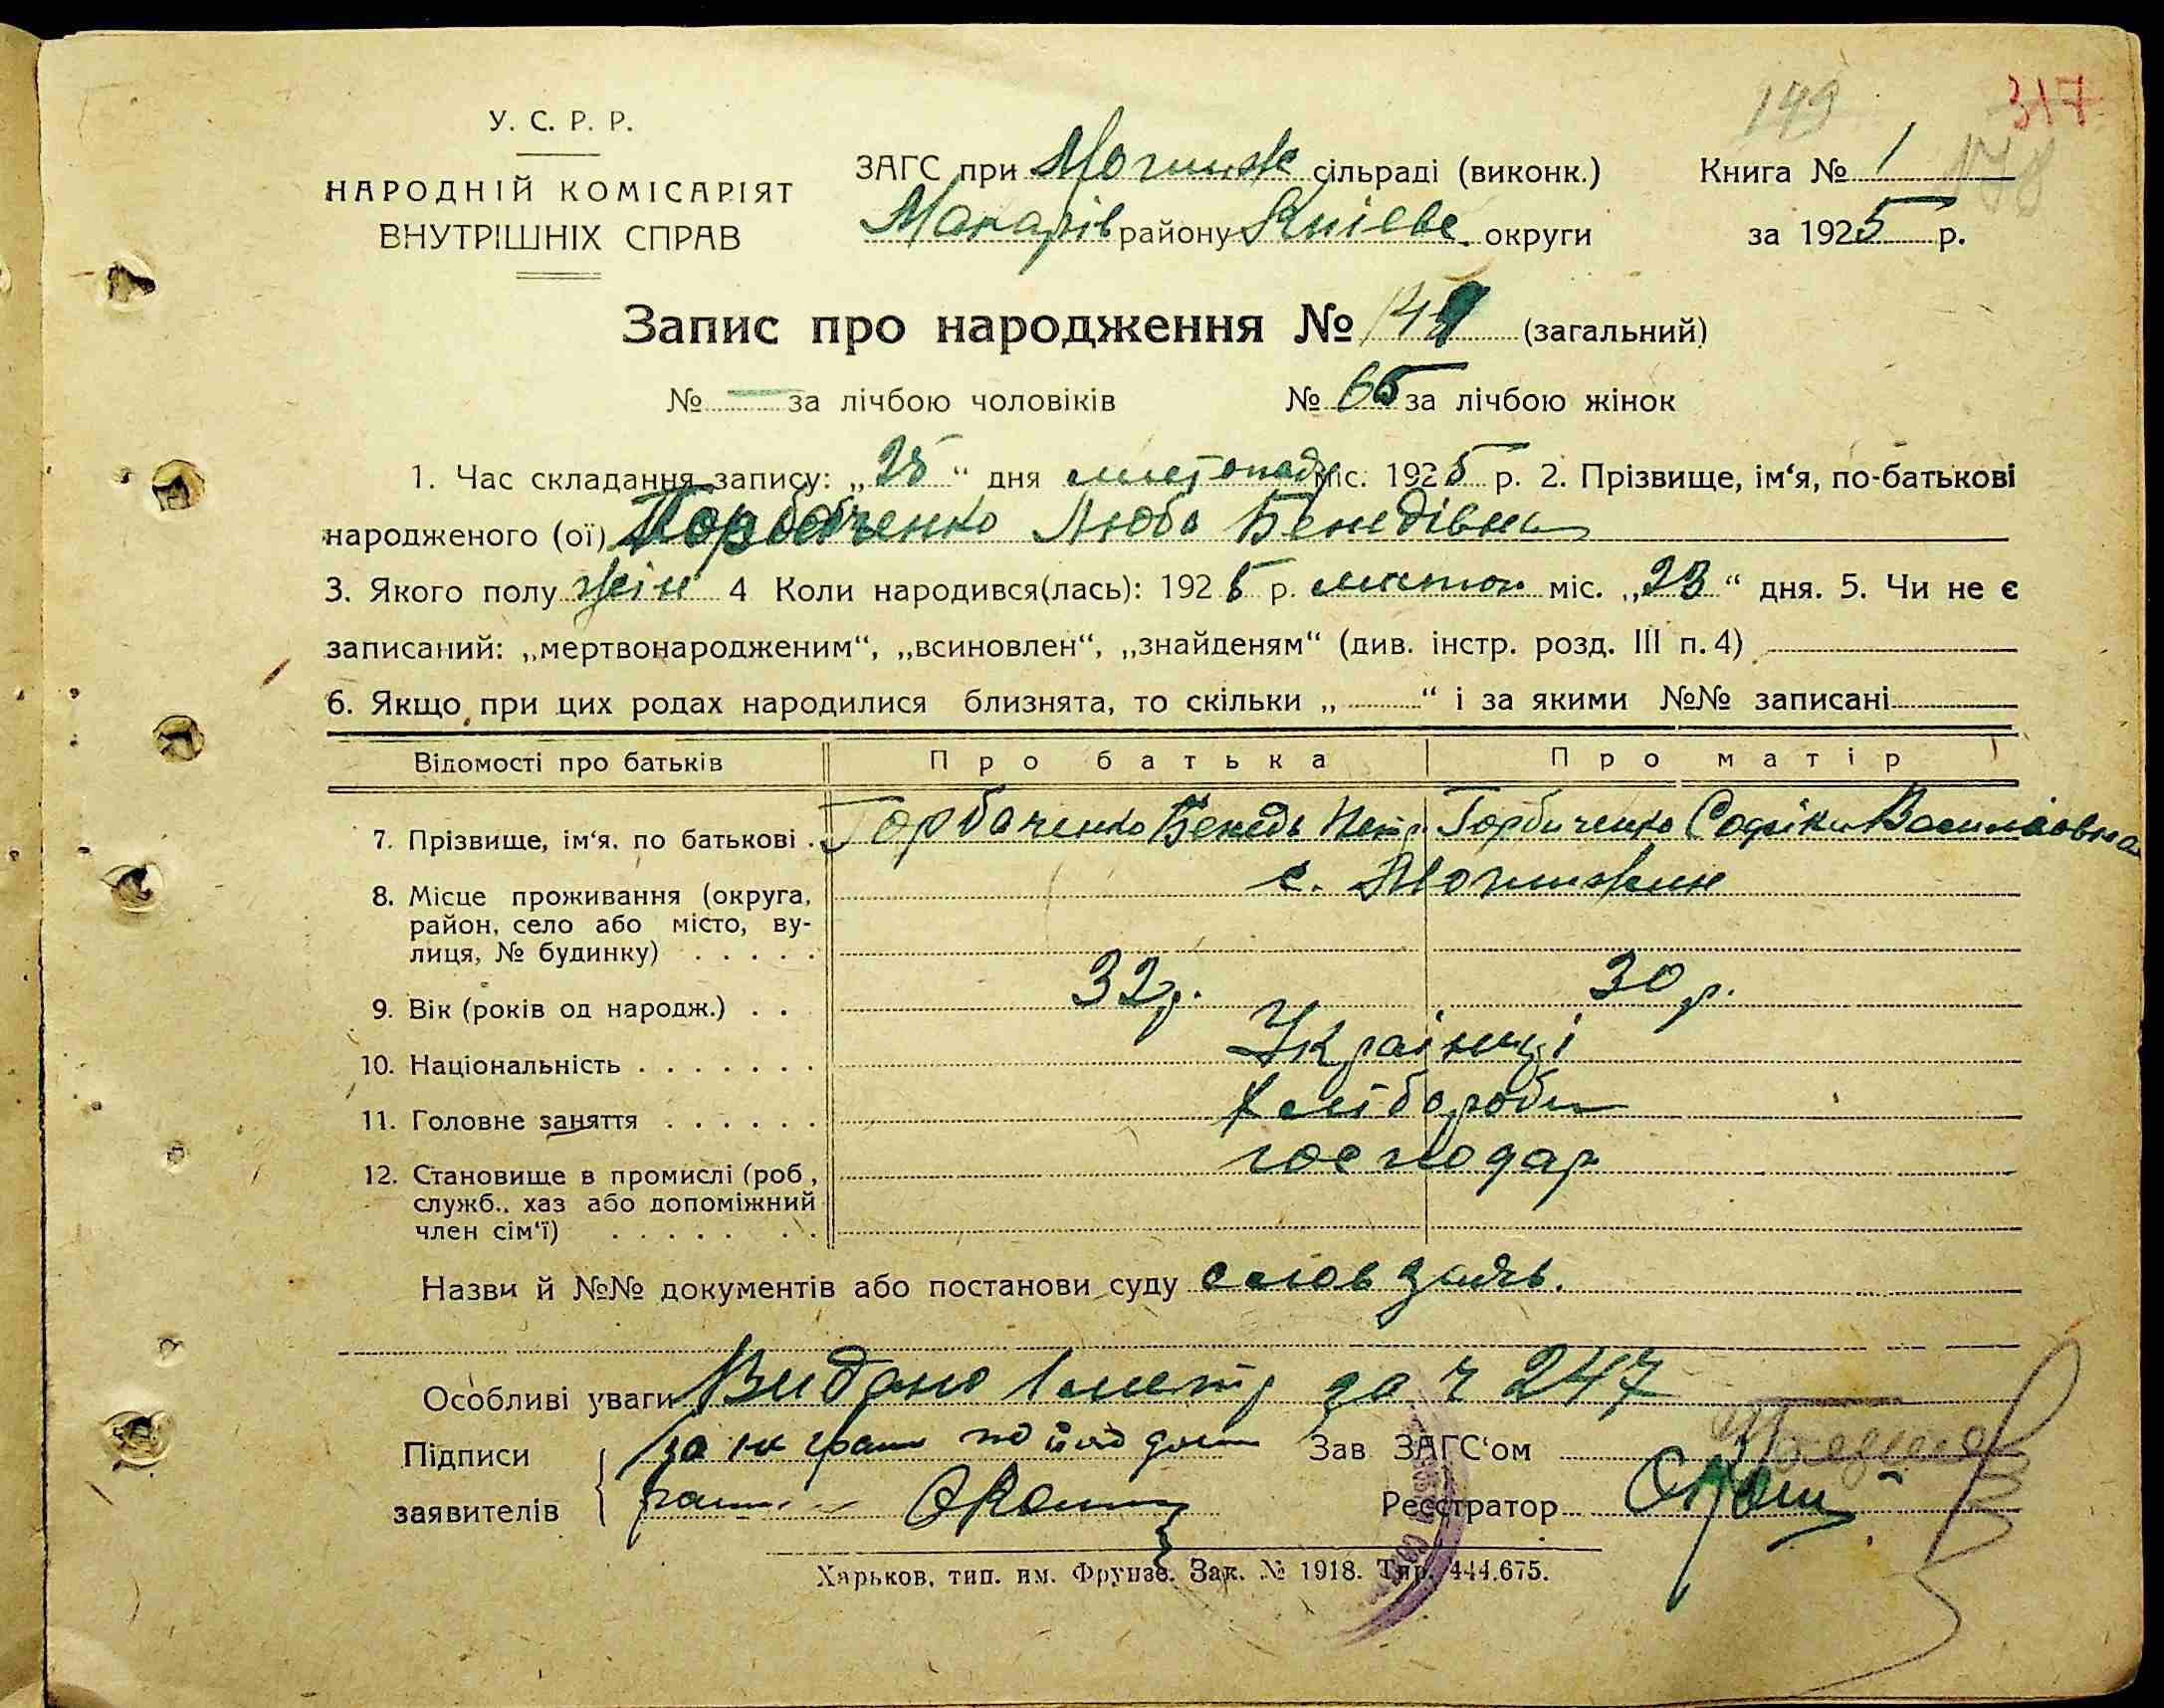 149
317
178
У. С. Р. Р.
НАРОДНІЙ КОМІСАРІЯТ
ВНУТРІШНІХ СПРАВ
ЗАГС при Мотиж сільраді (виконк.)
Макарів району Київс. округи
Книга № 1
за 1925 р.
Запис про народження № 149 (загальний)
№ — за лічбою чоловіків № 65 за лічбою жінок
1. Час складання запису: „25“ дня листопаду міс. 1925 р. 2. Прізвище, ім‘я, по-батькові
народженого (ої) Горбаченко Люба Бенедівна
3. Якого полу жін 4 Коли народився(лась): 1925 р. листоп міс. „23“ дня. 5. Чи не є
записаний: „мертвонародженим“, „всиновлен“, „знайденям“ (див. інстр. розд. III п. 4)
6. Якщо при цих родах народилися близнята, то скільки „ “ і за якими №№ записані
Відомості про батьків Про батька Про матір
7. Прізвище, ім‘я, по батькові . Горбаченко Бенедь Петр. Горбаченко Софіка Василіовна
8. Місце проживання (округа, с. Мотижин
район, село або місто, ву-
лиця, № будинку) . . . . .
9. Вік (років од народж.) . . 32 р. 30 р.
10. Національність . . . . . . . Українці
11. Головне заняття . . . . . . Хлібороби
12. Становище в промислі (роб, господар
служб., хаз або допоміжний
член сім‘ї) . . . . . . .
Назви й №№ документів або постанови суду слов заяв.
Особливі уваги Видано за ч 247
Підписи за не грам по його
заявителів
Зав ЗАГС‘ом
Реєстратор
Харьков, тип. им. Фрунзе. Зак. № 1918. Тир. 444.675.